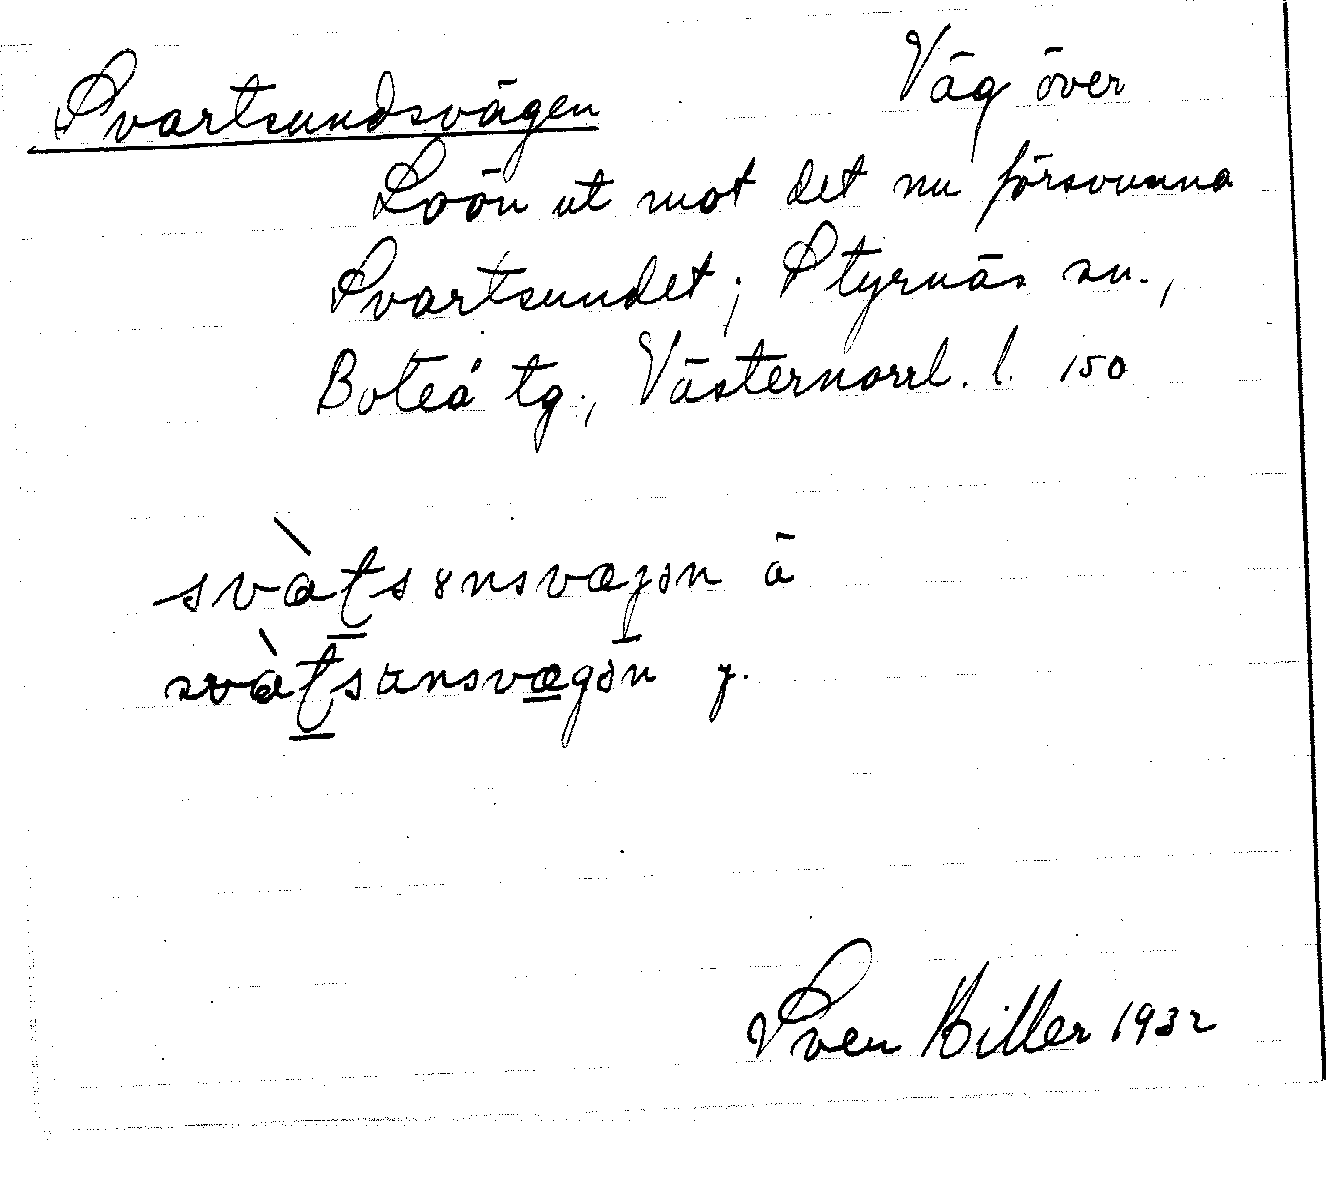 Svartsundsvägen Väg över
Loön ut mot det nu försvunna
Svartsundet; Styrnäs sn.,
Boteå tg., Västernorrl. l. 150
svàtsɤnsvæjən ä
svàtsɑnsvægən y.
Sven Hiller 1932